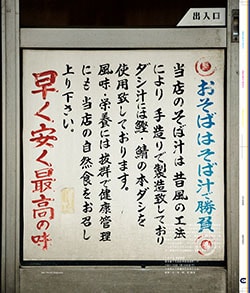 出入口
おそばはそば汁が勝負
当店のそば汁は昔風の工法
により手造りで製造致しており
ダシ汁には鰹・鯖の本ダシを
使用致しております。
風味・栄養には抜群で健康管理
にも当店の自然食をお召し
上り下さい。
早く、安く、最高の味